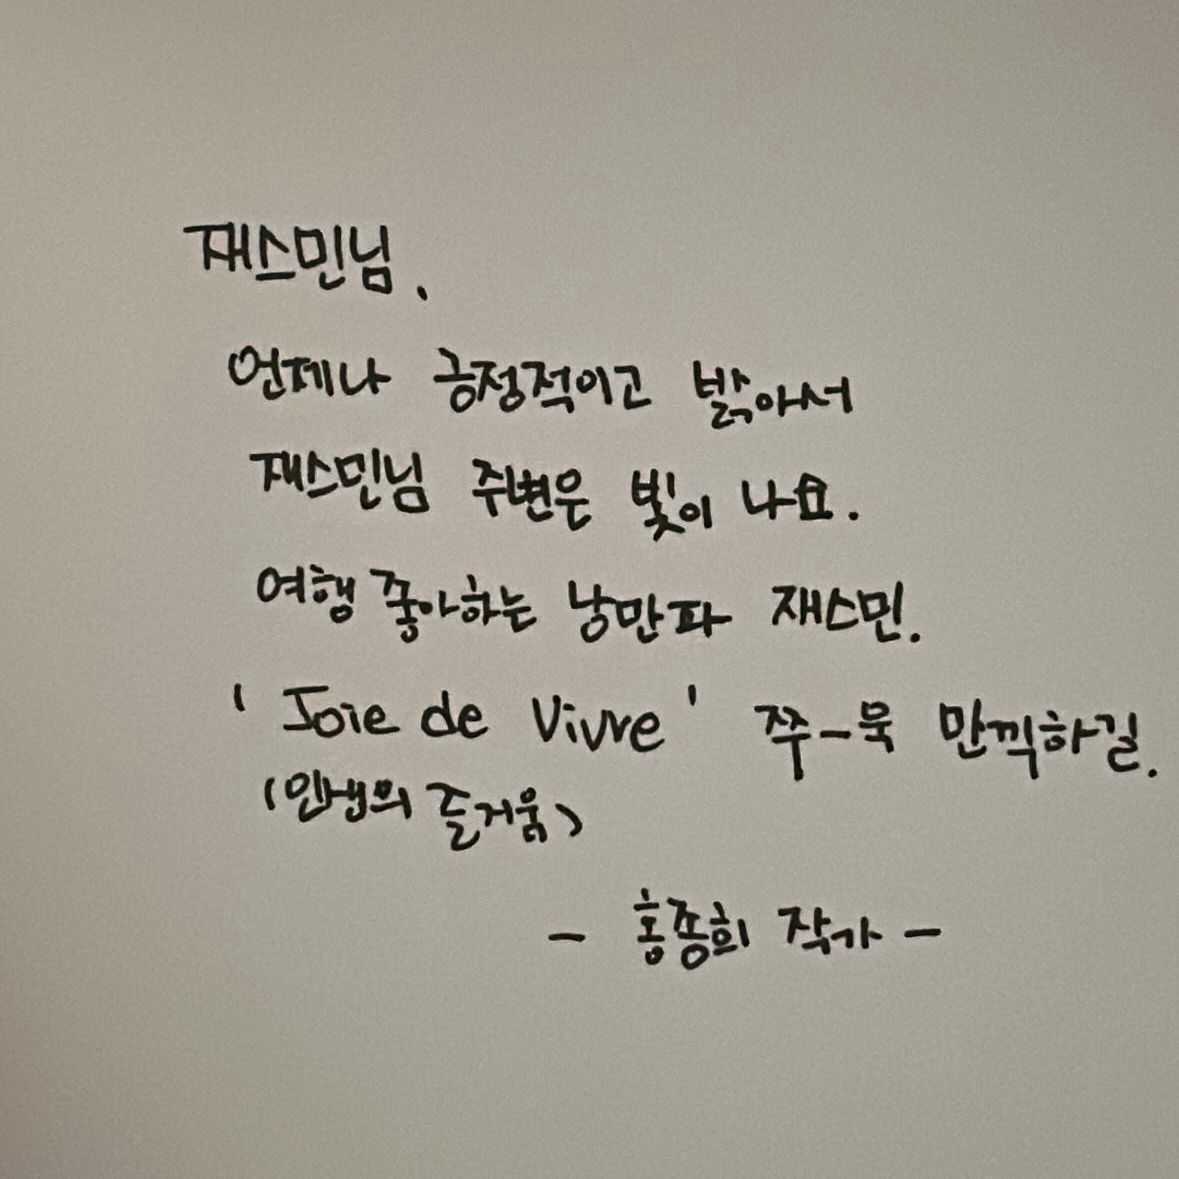 재스민님.
언제나 긍정적이고 밝아서
재스민님 주변은 빛이 나요.
여행 좋아하는 낭만파 재스민.
'Joie de Vivre' 쭈-욱 만끽하길.
(인생의 즐거움)
- 홍종희 작가 -